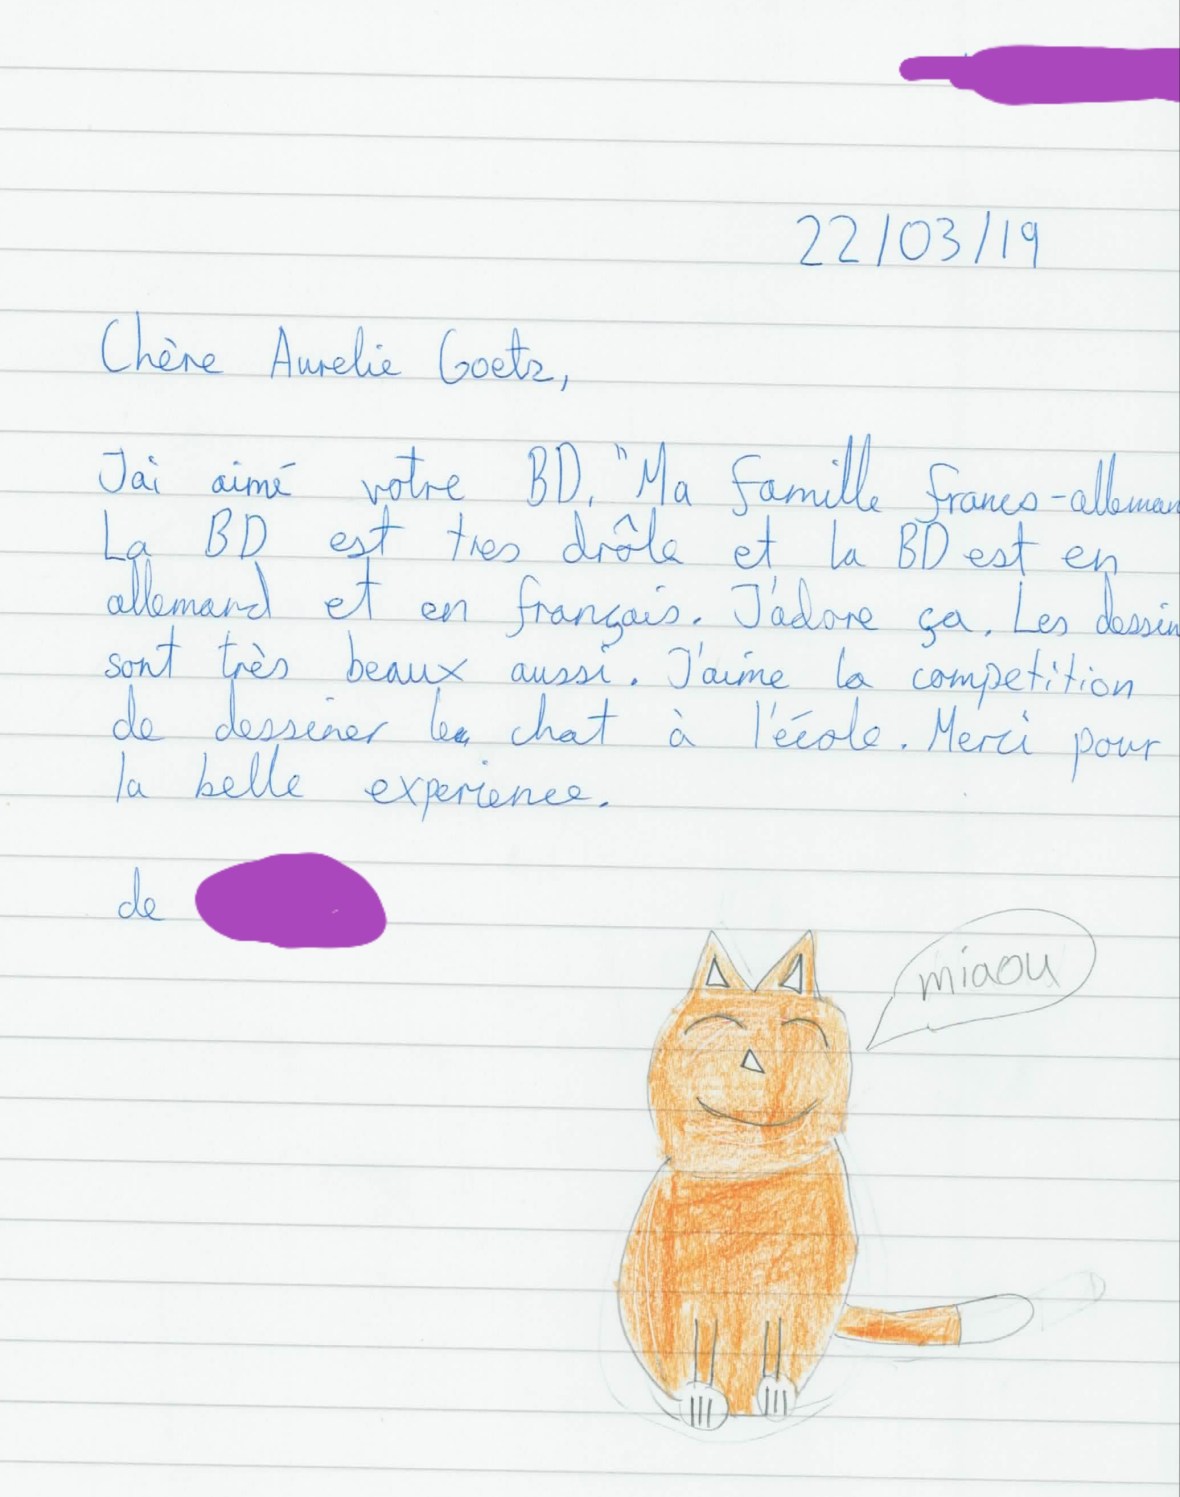 22/03/19
Chère Aurelie Goetz,
Jai aimé votre BD. "Ma famille franco-alleman
La BD est tres drôle et la BD est en
allemand et en français. J'adore ça. Les dessin
sont très beaux aussi. J'aime la competition
de dessiner le chat à l'école. Merci pour
la belle experience.
de
miaou